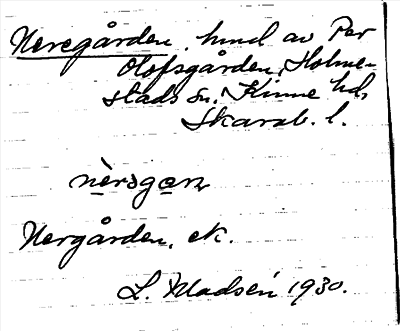 Neregården, hmd av Per
Olofsgården, Holme-
stads sn, Kinne hd,
Skarab. l.
nèrəgarn
Nergården, ek.
L. Madsén 1930.